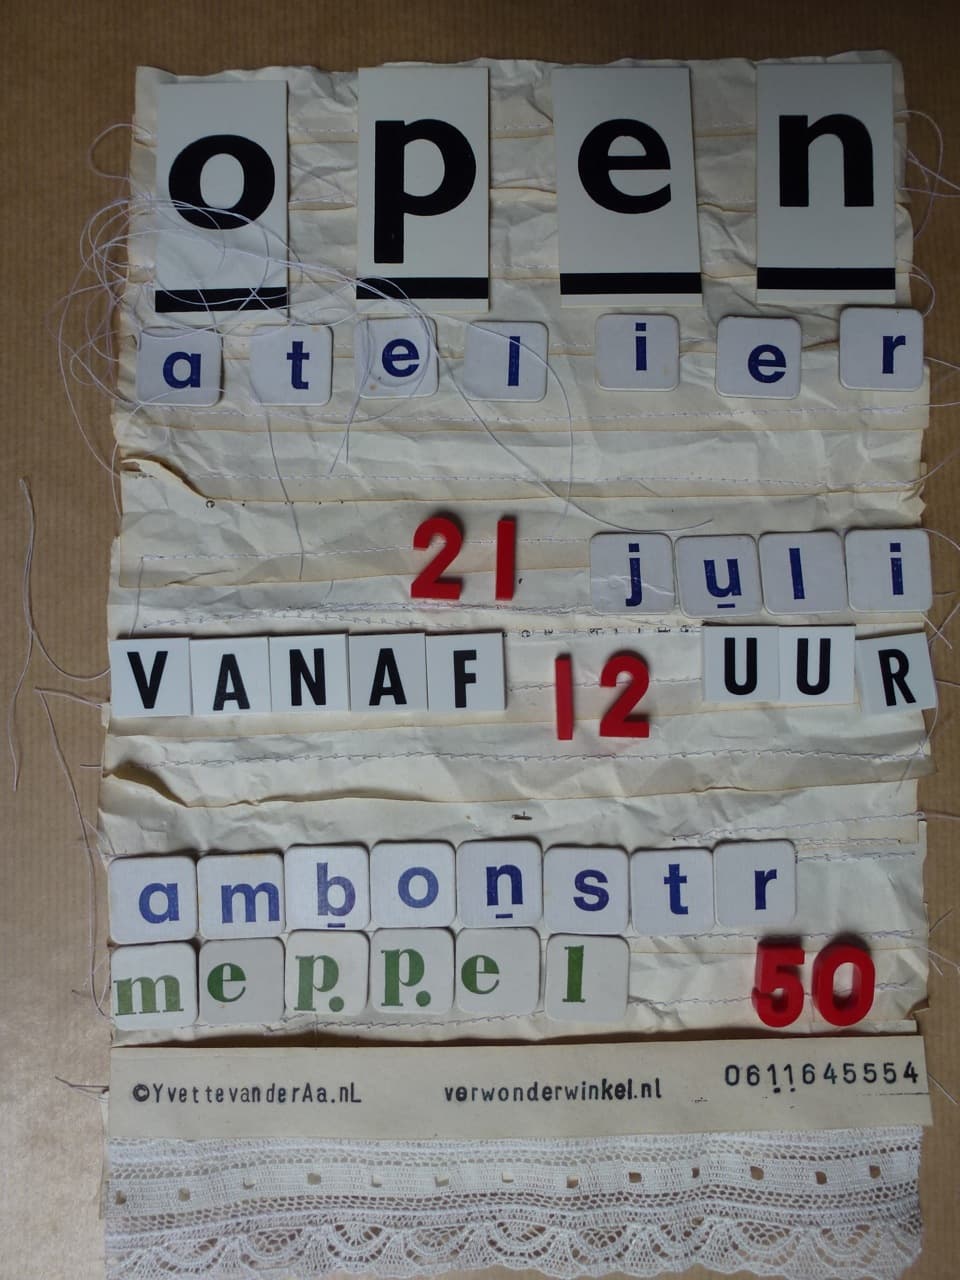 open
atelier
21 juli
VANAF 12 UUR
ambonstr
meppel 50
©YvettevanderAa.nL verwonderwinkel.nl 0611645554